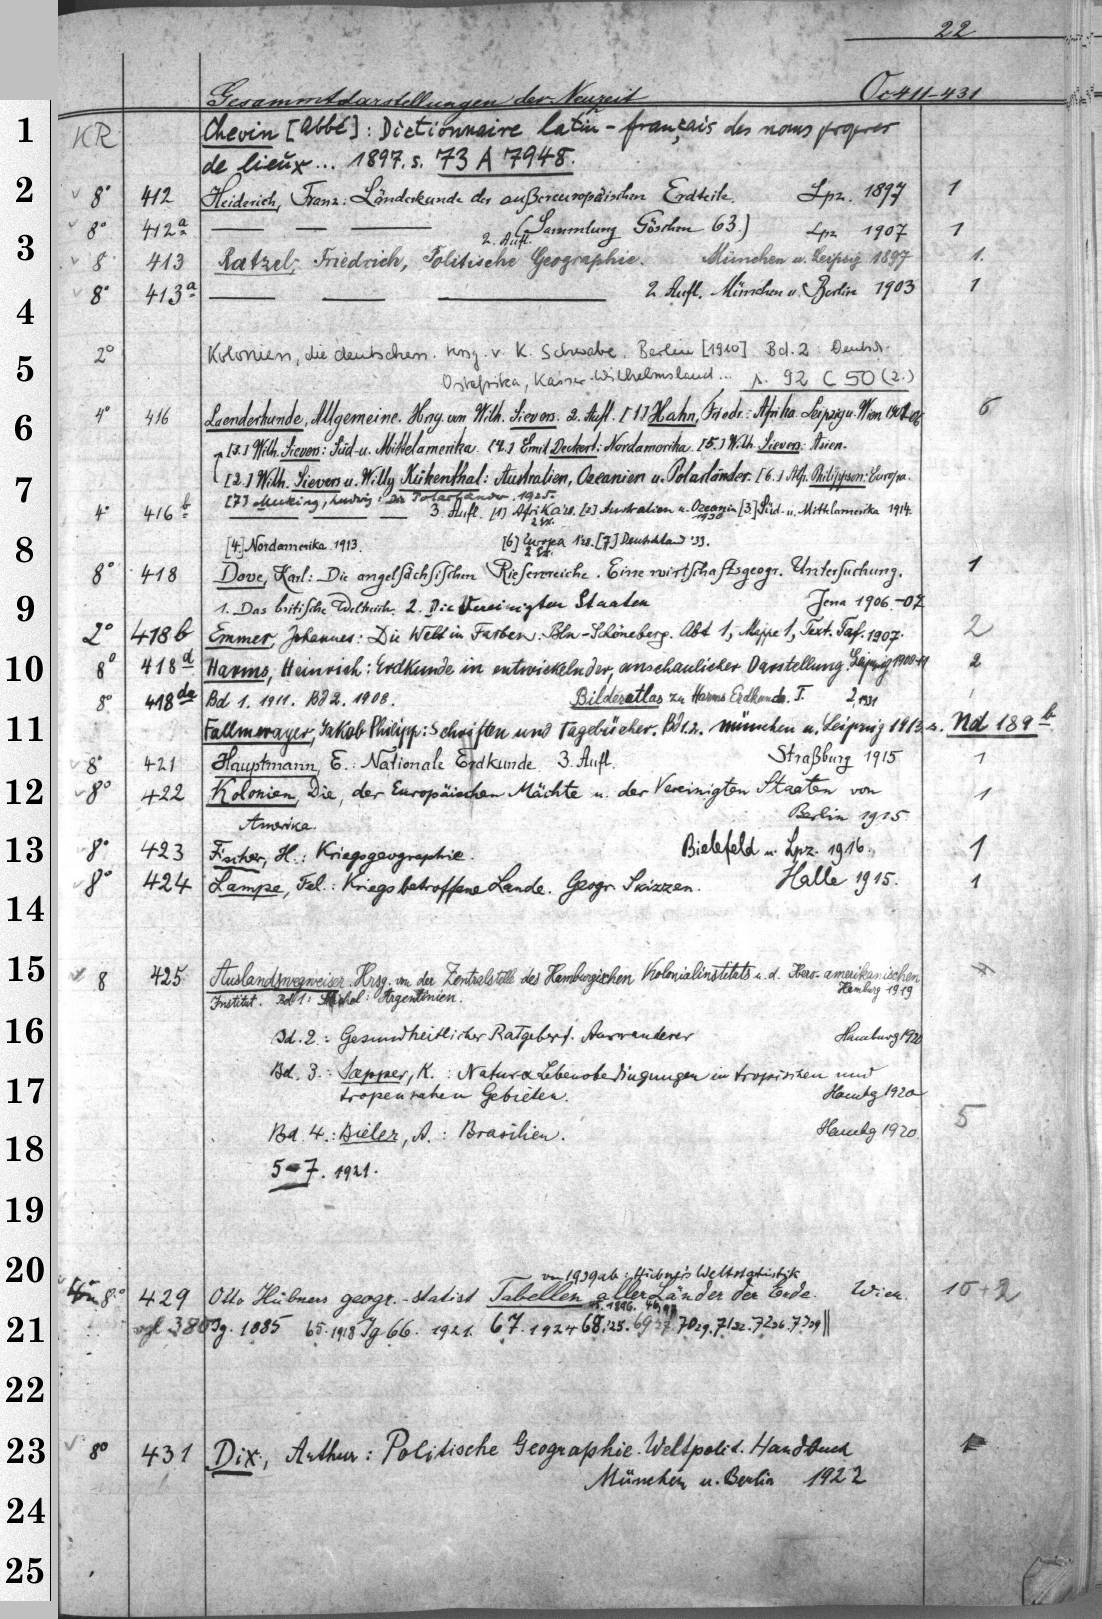 22
Gesammtdarstellungen der Neuzeit Oc 411-431
1 KR Chevin [abbé]: Dictionnaire latin-français des noms propres
de lieux... 1897. s. 73 A 7948.
2 8° 412 Heiderich, Franz: Länderkunde der außereuropäischen Erdteile. Lpz. 1897 1
8° 412a — — — 2. Aufl. (Sammlung Göschen 63.) Lpz 1907 1
3 8 413 Ratzel, Friedrich, Politische Geographie. München u. Leipzig 1897 1.
8° 413a — — — 2. Aufl. München u. Berlin 1903 1
4
2° Kolonien, die deutschen. Hrsg. v. K. Schwabe. Berlin [1910] Bd. 2: Deutsch-
5 Ostafrika, Kaiser-Wilhelmsland... s. 92 C 50 (2.)
4° 416 Laenderkunde, Allgemeine. Hrg. von Wilh. Sievers. 2. Aufl. [1] Hahn, Friedr.: Afrika. Leipzig u. Wien 1901-06 6
6 [3.] Wilh. Sievers: Süd- u. Mittelamerika. [4.] Emil Deckert: Nordamerika. [5.] Wilh. Sievers: Asien.
[2.] Wilh. Sievers u. Willy Kükenthal: Australien, Ozeanien u. Polarländer. [6.] Alfr. Philippson: Europa.
7 [7] Mecking, Ludwig: Die Polarländer. 1925.
4° 416b — — — 3. Aufl. [1] Afrika '28. [2] Australien u. Ozeanien 1930 [3] Süd- u. Mittelamerika 1914.
2 Ex.
8 [4] Nordamerika 1913. [6] Europa [7] Deutschland '33.
2 Ex.
8° 418 Dove, Karl: Die angelsächsischen Riesenreiche. Eine wirtschaftsgeogr. Untersuchung. 1
9 1. Das britische Weltreich. 2. Die Vereinigten Staaten Jena 1906-07
2° 418b Emmer, Johannes: Die Welt in Farben. Bln-Schöneberg. Abt 1, Mappe 1, Text. Taf. 1907. 2
10 8° 418d Harms, Heinrich: Erdkunde in entwickelnder, anschaulicher Darstellung. Leipzig 2
8° 418da Bd 1. 1911. Bd 2. 1908. Bilderatlas zu Harms Erdkunde. I. 1
11 Fallmerayer, Jakob Philipp: Schriften und Tagebücher. Bd 1.2. München u. Leipzig 1913. s. Nd 189b
8° 421 Hauptmann, E.: Nationale Erdkunde. 3. Aufl. Straßburg 1915 1
12 8° 422 Kolonien, Die, der Europäischen Mächte u. der Vereinigten Staaten von 1
Amerika. Berlin 1915
13 8° 423 Fischer, H.: Kriegsgeographie. Bielefeld u. Lpz. 1916. 1
8° 424 Lampe, Fel.: Kriegsbetroffene Lande. Geogr. Skizzen. Halle 1915. 1
14
15 8 425 Auslandswegweiser. Hrsg. von der Zentralstelle des Hamburgischen Kolonialinstituts u. d. Ibero-amerikanischen
Institut. Bd 1: Argentinien. Hamburg 1919
16 Bd. 2.: Gesundheitlicher Ratgeber f. Auswanderer Hamburg 1920
Bd. 3.: Sapper, K.: Natur & Lebensbedingungen in tropischen und
17 tropennahen Gebieten. Hambg 1920 5
18 Bd. 4.: Bieler, A.: Brasilien. Hambg 1920
5-7. 1921.
19
20 von 1939 ab: Hübner's Weltstatistik
8° 429 Otto Hübners geogr.-statist Tabellen aller Länder der Erde. Wien. 10+2
21 vgl 380 Jg. 1885 65. 1918 Jg 66. 1921. 67. 1924 68. '25. 69 27 70 29. 71 32. 72 36. 73 39
22
23 8° 431 Dix, Arthur: Politische Geographie. Weltpolit. Handbuch 1
München u. Berlin 1922
24
25